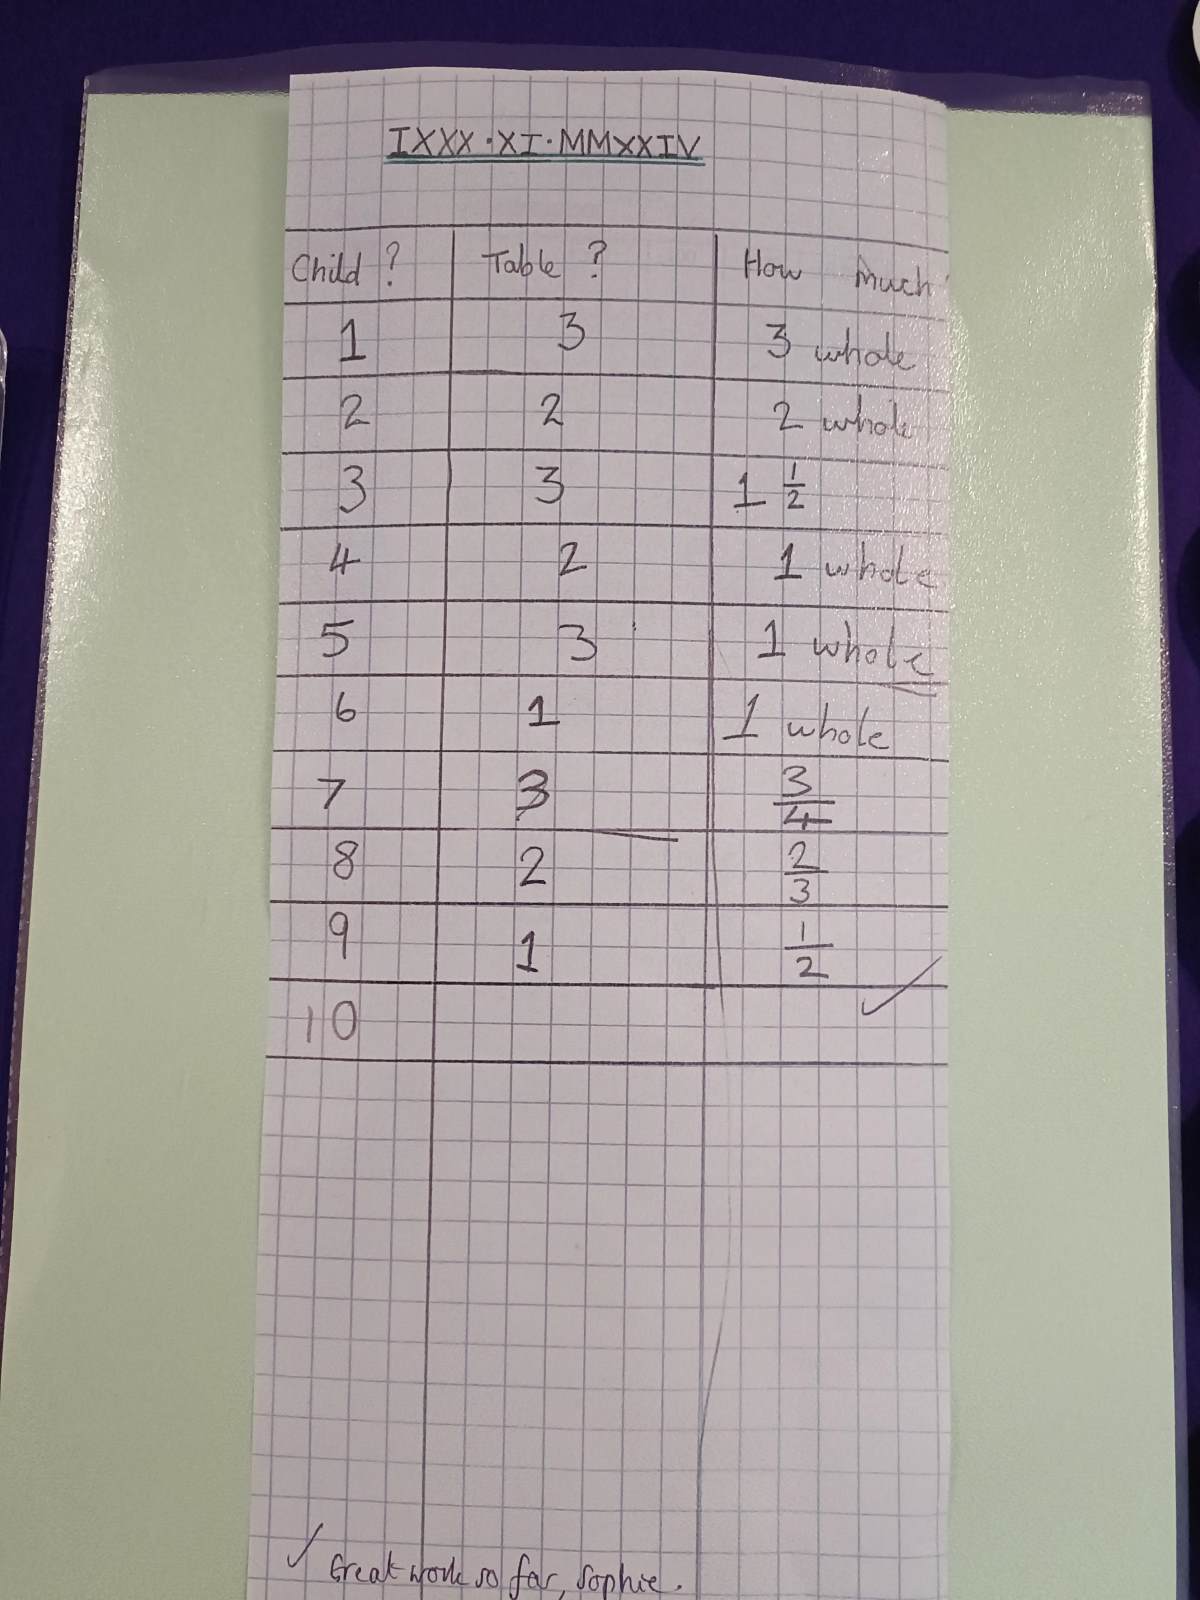 IXXX·XI·MMXXIV
Child ? Table ? How much
1 3 3 whole
2 2 2 whole
3 3 1 1/2
4 2 1 whole
5 3 1 whole
6 1 1 whole
7 3 3/4
8 2 2/3
9 1 1/2
10
✓
✓ Great work so far, Sophie.